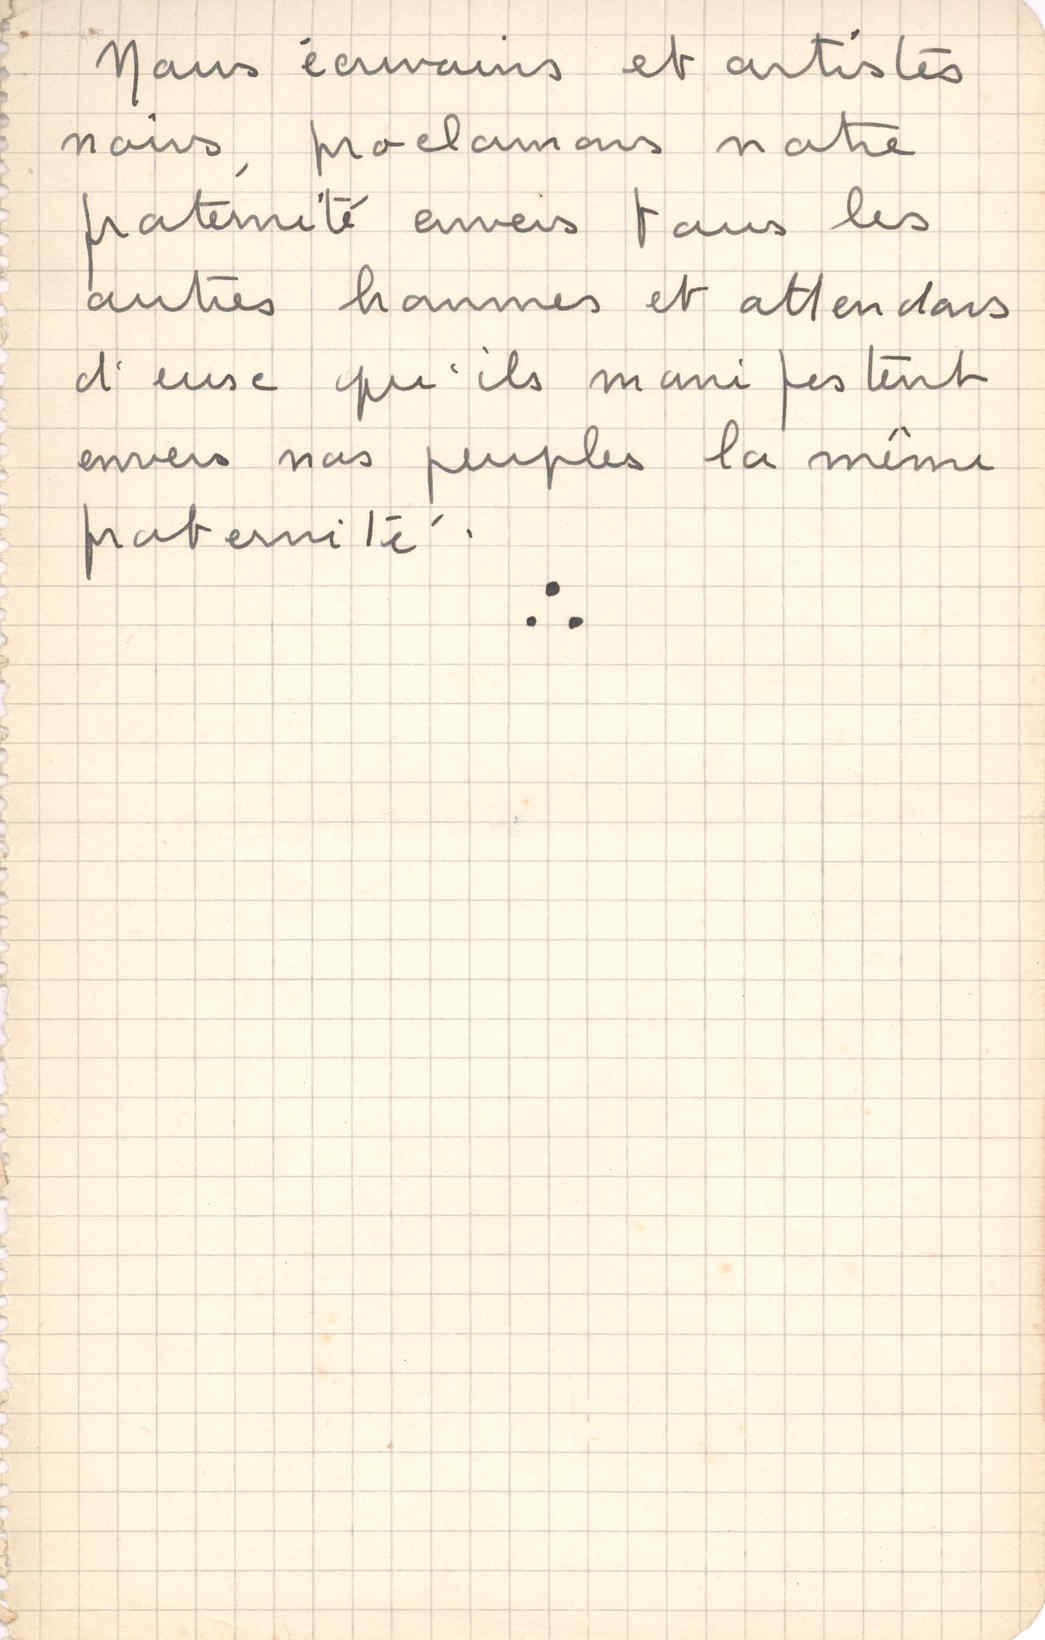 Nous écrivains et artistes
noirs, proclamons notre
fraternité envers tous les
autres hommes et attendons
d'eux qu'ils manifestent
envers nos peuples la même
fraternité.
∴